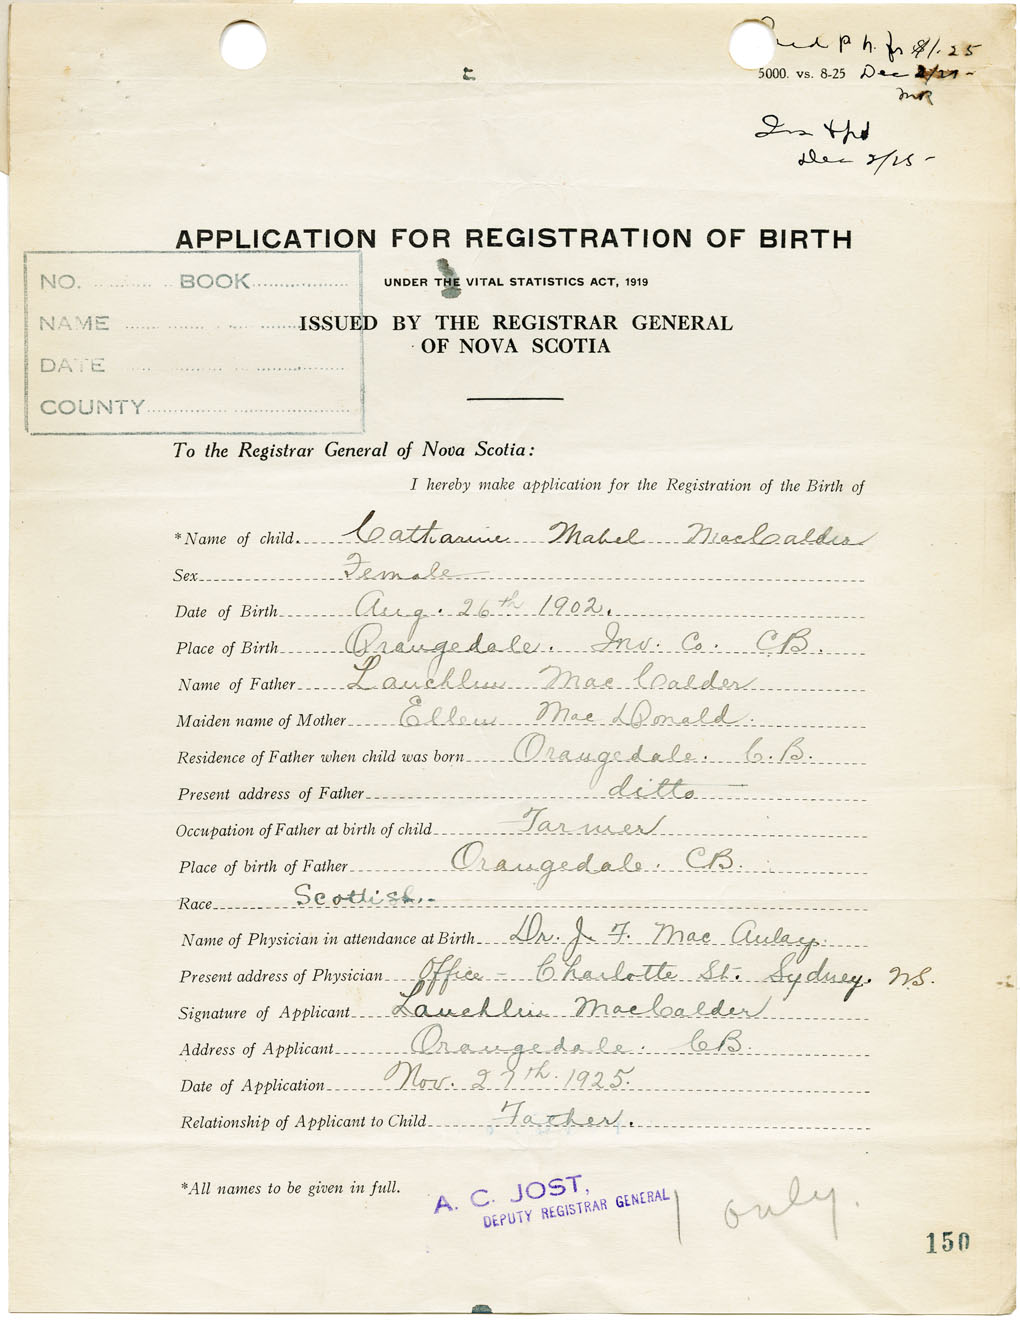 $1.25
5000. vs. 8-25 Dec
Dec 2/25
APPLICATION FOR REGISTRATION OF BIRTH
UNDER THE VITAL STATISTICS ACT, 1919
ISSUED BY THE REGISTRAR GENERAL
OF NOVA SCOTIA
NO. BOOK
NAME
DATE
COUNTY
To the Registrar General of Nova Scotia:
I hereby make application for the Registration of the Birth of
*Name of child. Catharine Mabel MacCalder
Sex Female
Date of Birth Aug. 26th 1902.
Place of Birth Orangedale. Inv. Co. C.B.
Name of Father Lauchlin MacCalder
Maiden name of Mother Ellen MacDonald.
Residence of Father when child was born Orangedale. C.B.
Present address of Father ditto
Occupation of Father at birth of child Farmer
Place of birth of Father Orangedale. CB.
Race Scottish.
Name of Physician in attendance at Birth Dr. J. F. MacAulay.
Present address of Physician Office - Charlotte St. Sydney. N.S.
Signature of Applicant Lauchlin MacCalder
Address of Applicant Orangedale. CB.
Date of Application Nov. 27th. 1925.
Relationship of Applicant to Child Father.
*All names to be given in full.
A. C. JOST,
DEPUTY REGISTRAR GENERAL
only.
150